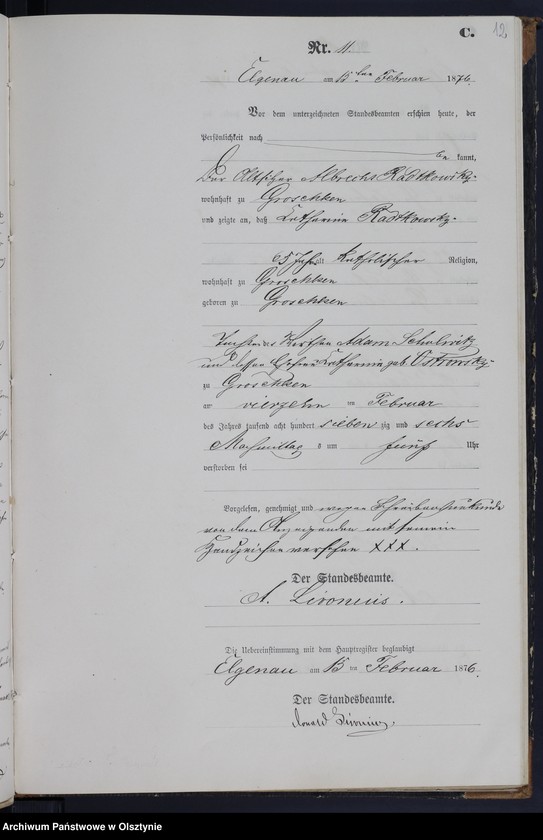 12
C.
Nr. 11.
Elgenau am 15ten Februar 1876.
Vor dem unterzeichneten Standesbeamten erschien heute, der
Persönlichkeit nach
be kannt,
Der Altsitzer Albrecht Radtkowsky
wohnhaft zu Groschken
und zeigte an, daß Catharina Radtkowsky
65 Jahr alt katholischer Religion,
wohnhaft zu Groschken
geboren zu Groschken
Tochter des Adam
und dessen Ehefrau Catharina geb. Ostrowsky
zu Groschken
am vierzehn ten Februar
des Jahres tausend acht hundert sieben zig und sechs
Nachmittag s um fünf Uhr
verstorben sei
Vorgelesen, genehmigt und wegen Schreibensunkunde
von dem Anzeigenden mit seinem
Handzeichen versehen XXX.
Der Standesbeamte.
A. Livonius.
Die Uebereinstimmung mit dem Hauptregister beglaubigt
Elgenau am 15 ten Februar 1876.
Der Standesbeamte.
Archiwum Państwowe w Olsztynie